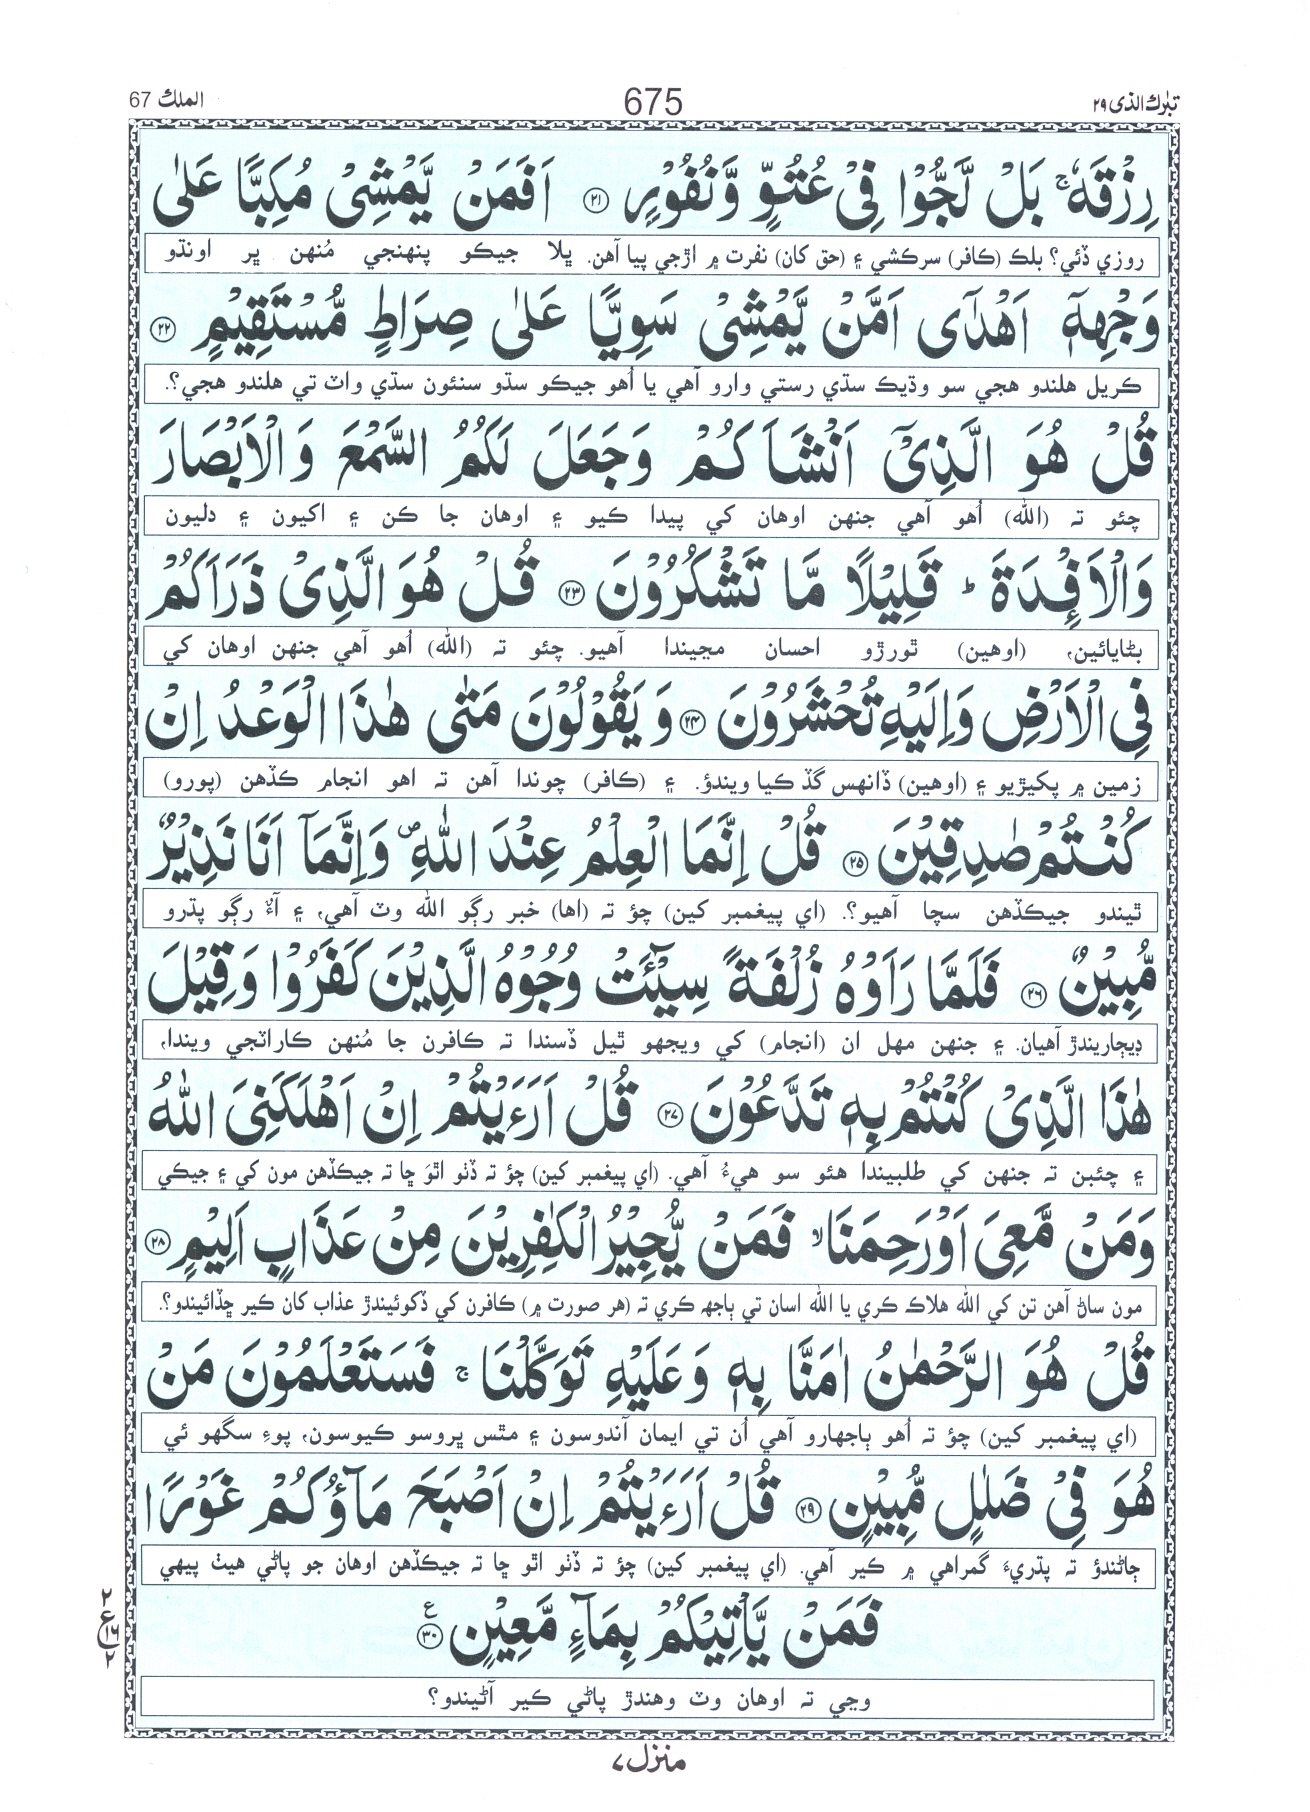 تبٰرك الذی ٢٩
675
الملك 67
رِزْقَهٗ ۚ بَلْ لَّجُّوْا فِیْ عُتُوٍّ وَّنُفُوْرٍ ۝۲۱ اَفَمَنْ یَّمْشِیْ مُكِبًّا عَلٰی
روزي ڏئي؟ بلڪ (ڪافر) سرڪشي ۽ (حق کان) نفرت ۾ اڙجي پيا آهن. ڀلا جيڪو پنهنجي مُنهن ڀر اونڌو
وَجْهِهٖۤ اَهْدٰۤی اَمَّنْ یَّمْشِیْ سَوِیًّا عَلٰی صِرَاطٍ مُّسْتَقِیْمٍ ۝۲۲
ڪريل هلندو هجي سو وڌيڪ سڌي رستي وارو آهي يا اُهو جيڪو سڌو سنئون سڌي واٽ تي هلندو هجي؟.
قُلْ هُوَ الَّذِیْۤ اَنْشَاَكُمْ وَجَعَلَ لَكُمُ السَّمْعَ وَالْاَبْصَارَ
چئو ته (الله) اُهو آهي جنهن اوهان کي پيدا ڪيو ۽ اوهان جا ڪن ۽ اکيون ۽ دليون
وَالْاَفْـِٕدَةَ ؕ قَلِیْلًا مَّا تَشْكُرُوْنَ ۝۲۳ قُلْ هُوَ الَّذِیْ ذَرَاَكُمْ
بڻايائين، (اوهين) ٿورڙو احسان مڃيندا آهيو. چئو ته (الله) اُهو آهي جنهن اوهان کي
فِی الْاَرْضِ وَاِلَیْهِ تُحْشَرُوْنَ ۝۲۴ وَیَقُوْلُوْنَ مَتٰی هٰذَا الْوَعْدُ اِنْ
زمين ۾ پکيڙيو ۽ (اوهين) ڏانهس گڏ ڪيا ويندؤ. ۽ (ڪافر) چوندا آهن ته اهو انجام ڪڏهن (پورو)
كُنْتُمْ صٰدِقِیْنَ ۝۲۵ قُلْ اِنَّمَا الْعِلْمُ عِنْدَ اللّٰهِ ۪ وَاِنَّمَاۤ اَنَا نَذِیْرٌ
ٿيندو جيڪڏهن سچا آهيو؟. (اي پيغمبر کين) چؤ ته (اها) خبر رڳو الله وٽ آهي، ۽ آءٌ رڳو پڌرو
مُّبِیْنٌ ۝۲۶ فَلَمَّا رَاَوْهُ زُلْفَةً سِیْٓئَتْ وُجُوْهُ الَّذِیْنَ كَفَرُوْا وَقِیْلَ
ڊيڄاريندڙ آهيان. ۽ جنهن مهل ان (انجام) کي ويجهو ٿيل ڏسندا ته ڪافرن جا مُنهن ڪاراٽجي ويندا،
هٰذَا الَّذِیْ كُنْتُمْ بِهٖ تَدَّعُوْنَ ۝۲۷ قُلْ اَرَءَیْتُمْ اِنْ اَهْلَكَنِیَ اللّٰهُ
۽ چئبن ته جنهن کي طلبيندا هئو سو هيءُ آهي. (اي پيغمبر کين) چؤ ته ڏٺو اٿوَ ڇا ته جيڪڏهن مون کي ۽ جيڪي
وَمَنْ مَّعِیَ اَوْرَحِمَنَا ۙ فَمَنْ یُّجِیْرُ الْكٰفِرِیْنَ مِنْ عَذَابٍ اَلِیْمٍ ۝۲۸
مون ساڻ آهن تن کي الله هلاڪ ڪري يا الله اسان تي ٻاجهه ڪري ته (هر صورت ۾) ڪافرن کي ڏکوئيندڙ عذاب کان ڪير ڇڏائيندو؟.
قُلْ هُوَ الرَّحْمٰنُ اٰمَنَّا بِهٖ وَعَلَیْهِ تَوَكَّلْنَا ۚ فَسَتَعْلَمُوْنَ مَنْ
(اي پيغمبر کين) چؤ ته اُهو ٻاجهارو آهي اُن تي ايمان آندوسون ۽ مٿس ڀروسو ڪيوسون، پوءِ سگهو ئي
هُوَ فِیْ ضَلٰلٍ مُّبِیْنٍ ۝۲۹ قُلْ اَرَءَیْتُمْ اِنْ اَصْبَحَ مَآؤُكُمْ غَوْرًا
ڄاڻندؤ ته پڌريءَ گمراهي ۾ ڪير آهي. (اي پيغمبر کين) چؤ ته ڏٺو اٿو ڇا ته جيڪڏهن اوهان جو پاڻي هيٺ پيهي
فَمَنْ یَّاْتِیْكُمْ بِمَآءٍ مَّعِیْنٍ ۝۳۰ ع
٢
ع
١٦
٢
وڃي ته اوهان وٽ وهندڙ پاڻي ڪير آڻيندو؟
منزل ٧